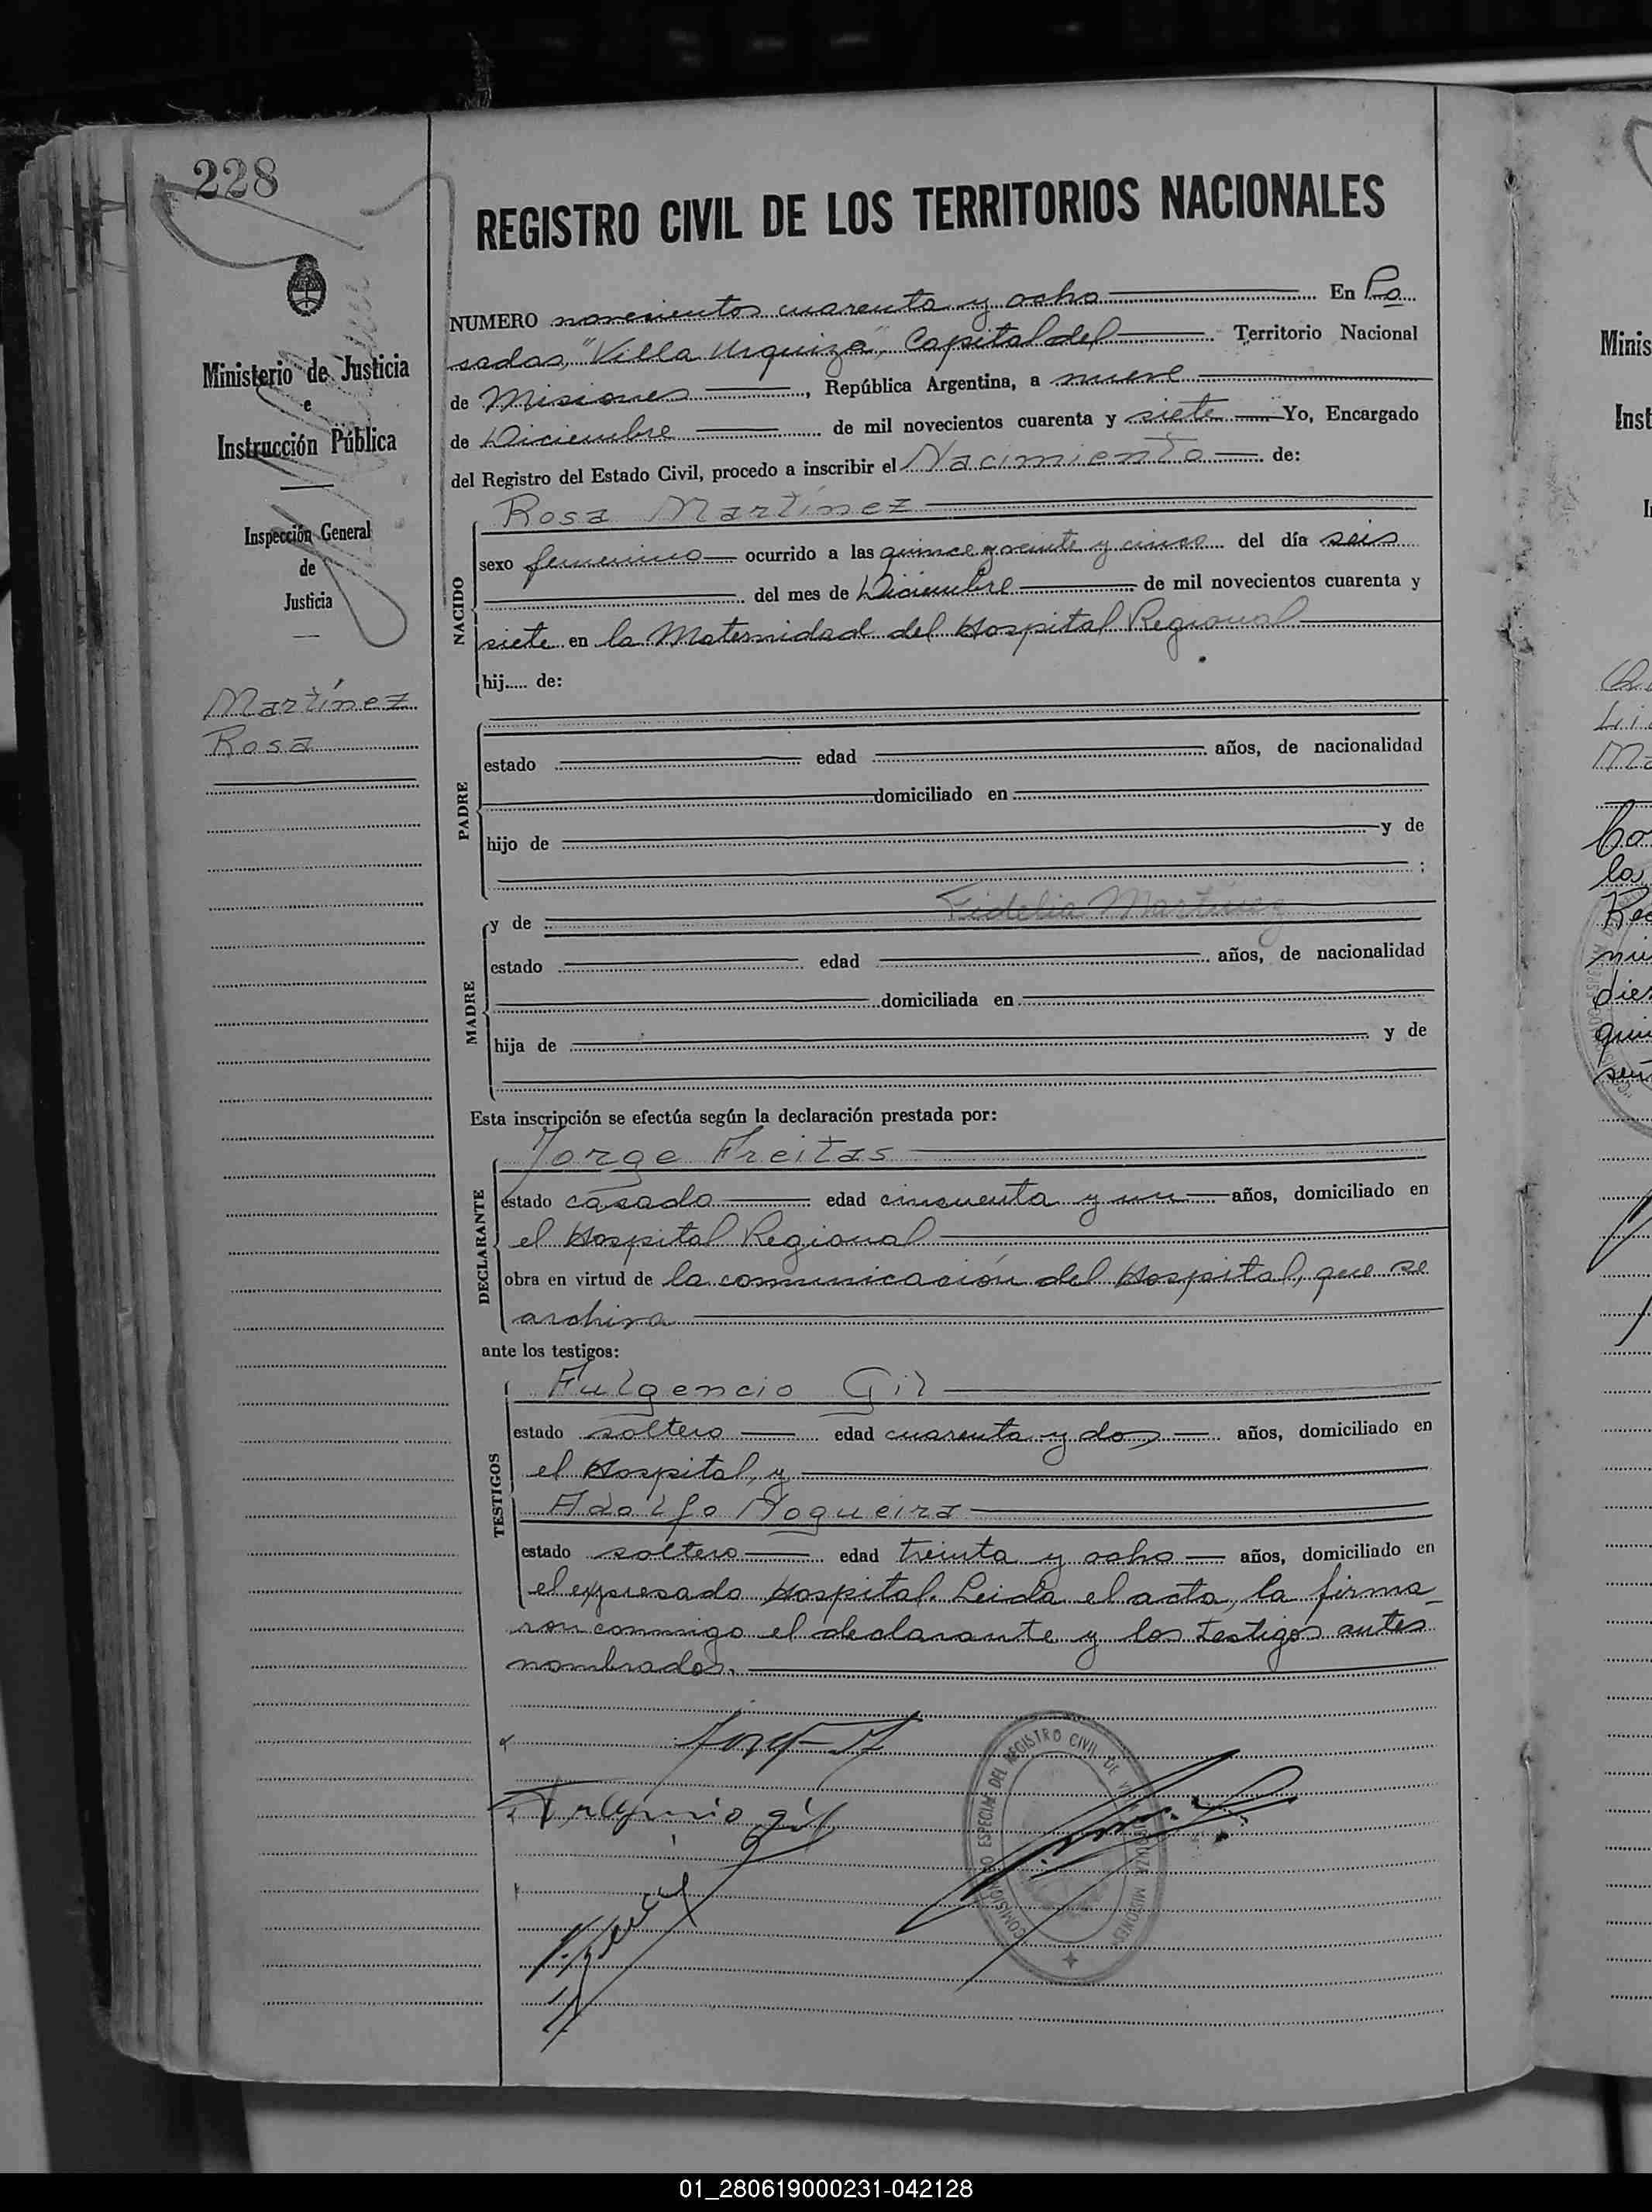 228
REGISTRO CIVIL DE LOS TERRITORIOS NACIONALES
Ministerio de Justicia
e
Instrucción Pública
Inspección General
de
Justicia
Martínez
Rosa
NUMERO novecientos cuarenta y ocho En Po
sadas, "Villa Urquiza", Capital del Territorio Nacional
de Misiones, República Argentina, a nueve
de Diciembre de mil novecientos cuarenta y siete Yo, Encargado
del Registro del Estado Civil, procedo a inscribir el Nacimiento de:
NACIDO
Rosa Martínez
sexo femenino ocurrido a las quince y veinte y cinco del día seis
del mes de Diciembre de mil novecientos cuarenta y
siete en la Maternidad del Hospital Regional
hij..... de:
PADRE
estado edad años, de nacionalidad
domiciliado en
hijo de y de
;
MADRE
Fidelia Martinez
y de
estado edad años, de nacionalidad
domiciliada en
hija de y de
Esta inscripción se efectúa según la declaración prestada por:
DECLARANTE
Jorge Freitas
estado casado edad cincuenta y un años, domiciliado en
el Hospital Regional
obra en virtud de la comunicación del Hospital, que se
archiva
ante los testigos:
TESTIGOS
Fulgencio Gil
estado soltero edad cuarenta y dos años, domiciliado en
el Hospital, y
Adolfo Nogueira
estado soltero edad treinta y ocho años, domiciliado en
el expresado Hospital. Leida el acta, la firma-
ron conmigo el declarante y los testigos antes
nombrados.
COMISIONADO ESPECIAL DEL REGISTRO CIVIL DE VILLA URQUIZA MISIONES
Fulgencio gil
Minis
Inst
01_280619000231-042128